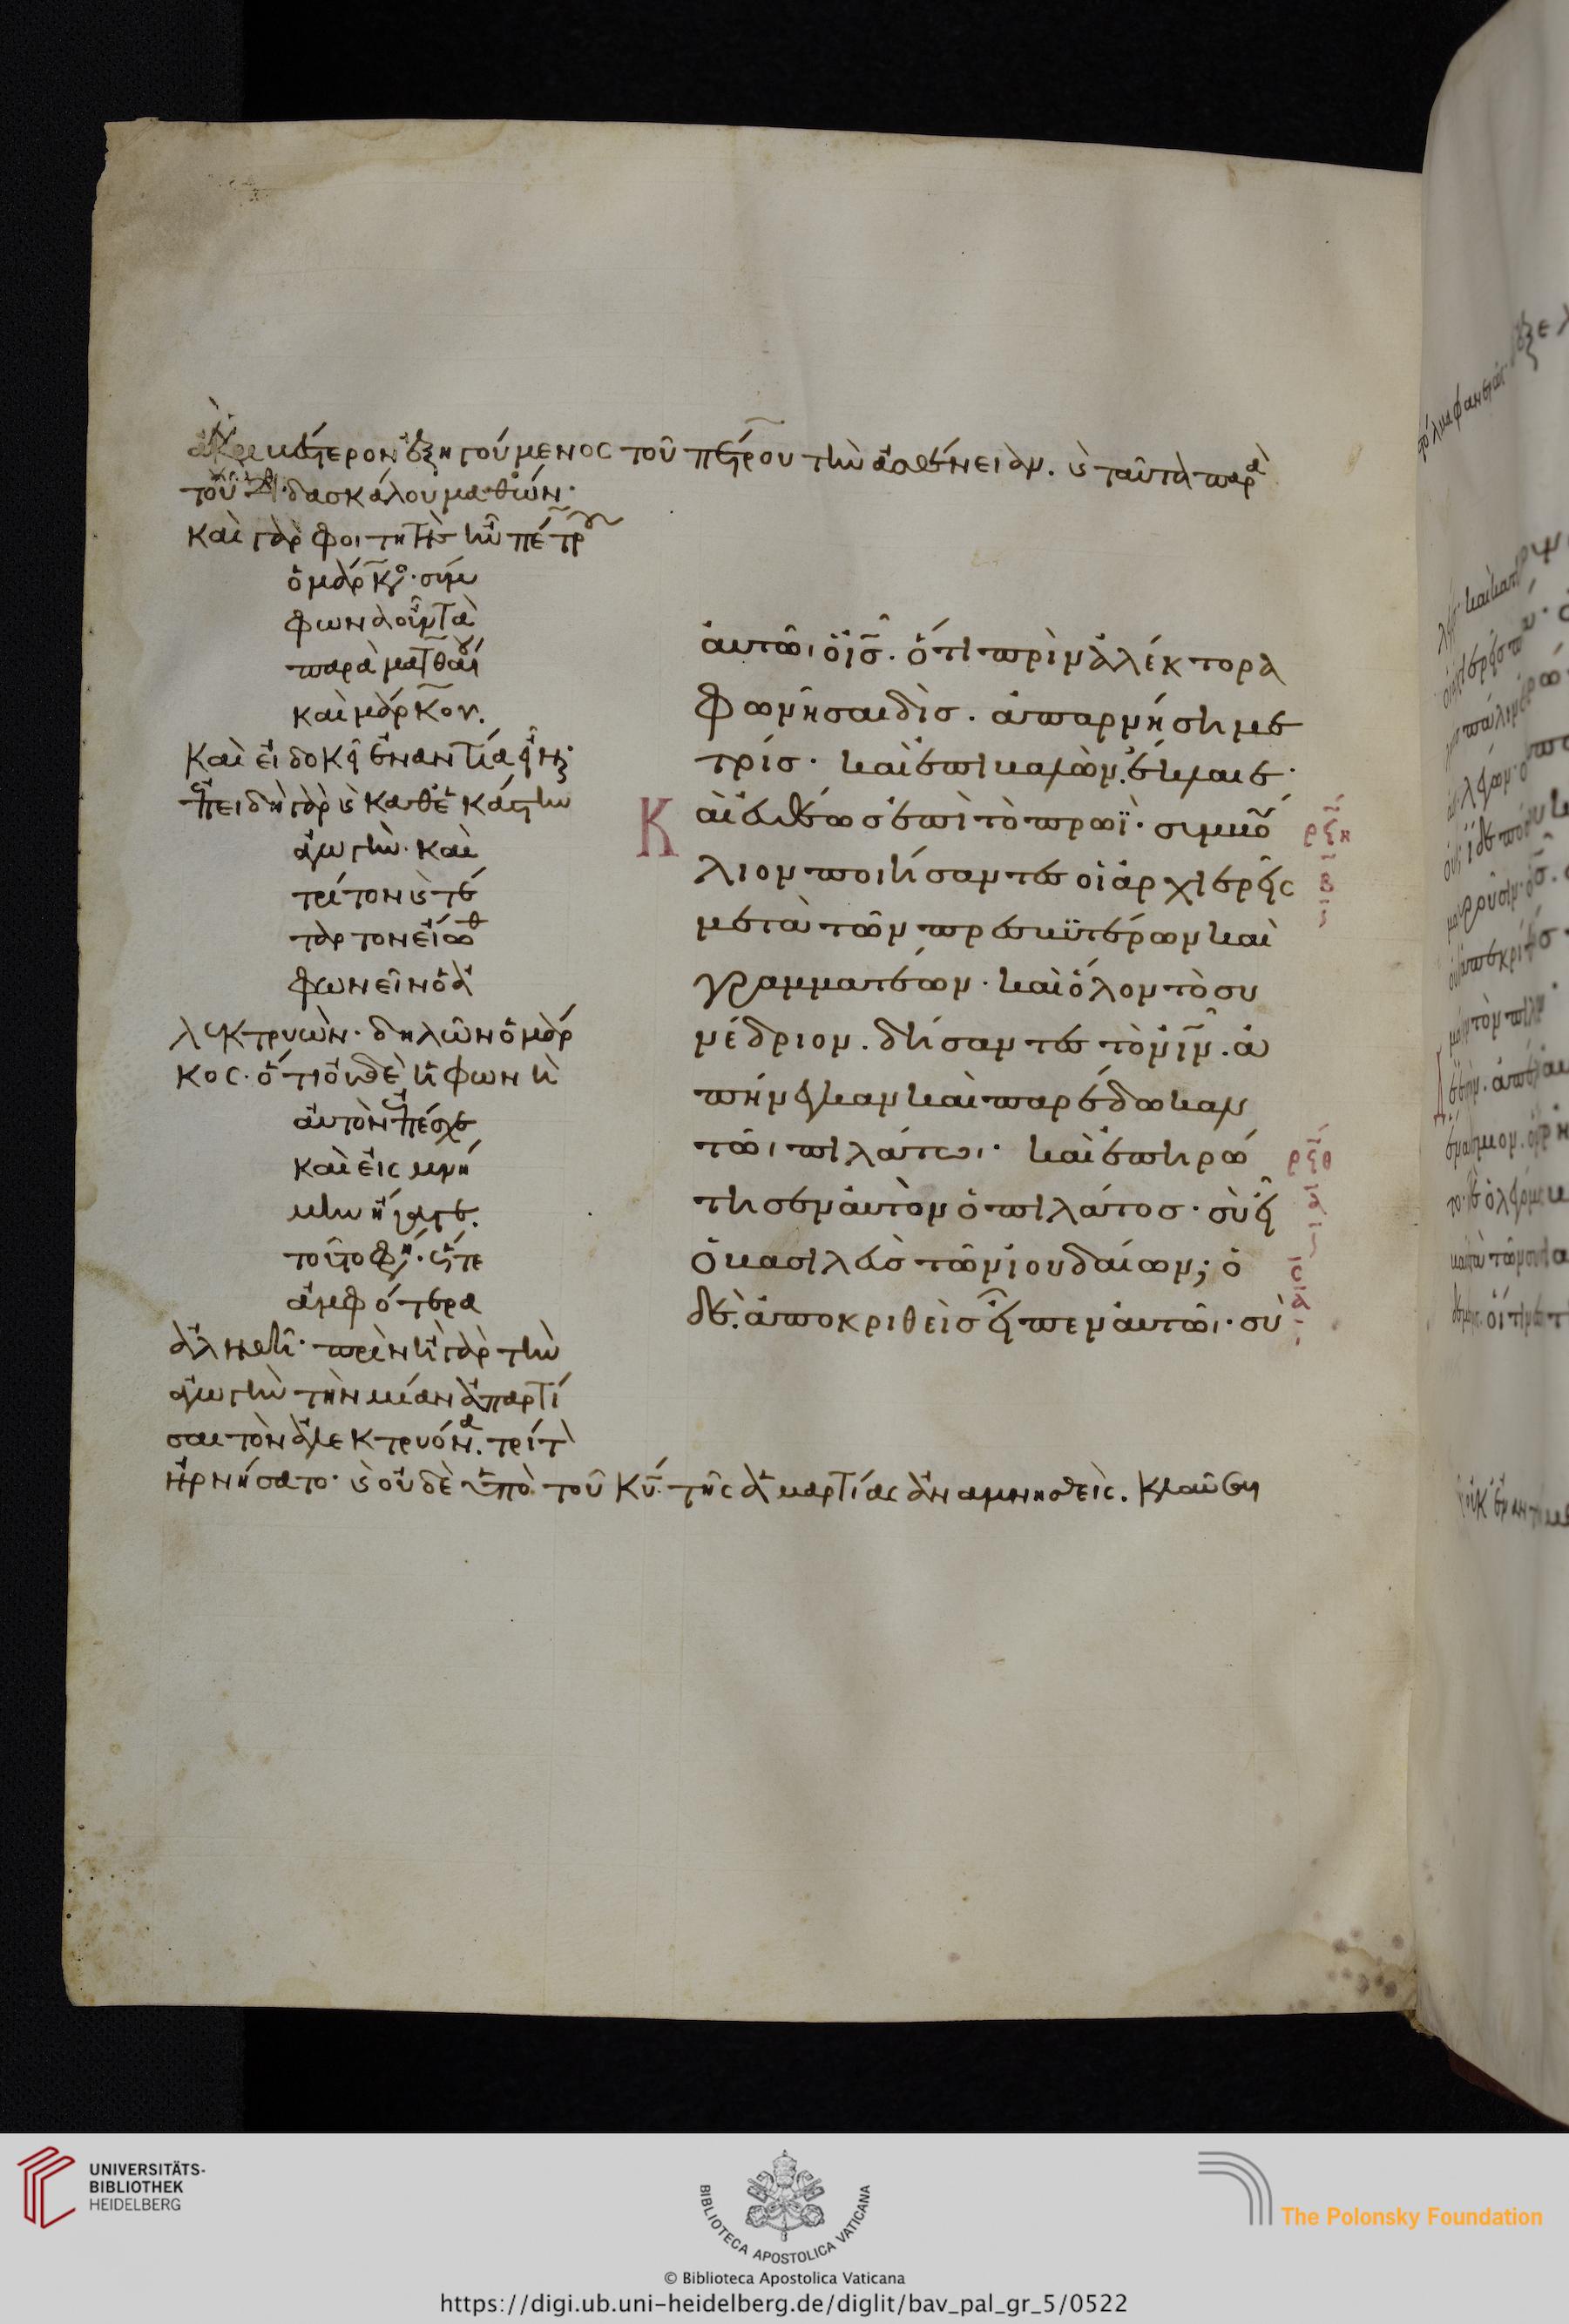 ἀκριβέστερον διηγούμενος τοῦ πέτρου τὴν ἀσθένειαν. καὶ ταῦτα παρὰ
τοῦ διδασκάλου μαθών·
καὶ γὰρ φοιτητὴς ἦν πέτρου
ὁ μάρκος· σύμ
φωνα οὖν τὰ
παρὰ ματθαίου
καὶ μάρκον.
καὶ εἰ δοκεῖ ἐναντία εἶναι·
ἐπειδὴ γὰρ καὶ καθ' ἑκάστην
ἀγωγὴν· καὶ
τρίτον καὶ τέ
ταρτον εἴωθε
φωνεῖν ὁ ἀ
λεκτρυών· δηλῶν ὁ μάρ
κος· ὅτι οὐδὲ ἡ φωνὴ
αὐτὸν ἐπέσχε
καὶ εἰς μνή
μην ἤγαγε.
τοῦτό φησιν· ὥστε
ἀμφότερα
ἀληθῆ· πρὶν ἢ γὰρ τὴν
ἀγωγὴν τὴν μίαν ἀπαρτί
σαι τὸν ἀλεκτρυόνα. τρίτον
ἠρνήσατο· καὶ οὐδὲ ὑπὸ τοῦ κυ τῆς ἁμαρτίας ἀναμνησθεὶς. κλαῦσαι
αυτῶι ὁ ισ. ὅτι πρὶν ἀλέκτορα
φωνῆσαι δὶσ. ἀπαρνήση με
τρίσ· καὶ ἐπιβαλὼν. ἔκλαιε·
Καὶ εὐθέωσ ἐπὶ τὸ πρωῒ· συμβού
λιον ποιήσαντεσ οἱ ἀρχιερεῖς
μετὰ τῶν πρεσβϋτέρων καὶ
γραμματέων· καὶ ὅλον τὸ συ
νέδριον. δήσαντεσ τὸν ιν. ἀ
πήνεγκαν καὶ παρέδωκαν
τῶι πιλάτωι· καὶ ἐπηρώ
τησεν αὐτὸν ὁ πιλάτοσ· σὺ εἶ
ὁ βασιλεὺσ τῶν ἰουδαίων; ὁ
δὲ. ἀποκριθεὶσ εἶπεν αὐτῶι· σὺ
ρξη
β
ρξθ
α
UNIVERSITÄTS-
BIBLIOTHEK
HEIDELBERG
BIBLIOTECA APOSTOLICA VATICANA
© Biblioteca Apostolica Vaticana
The Polonsky Foundation
https://digi.ub.uni-heidelberg.de/diglit/bav_pal_gr_5/0522